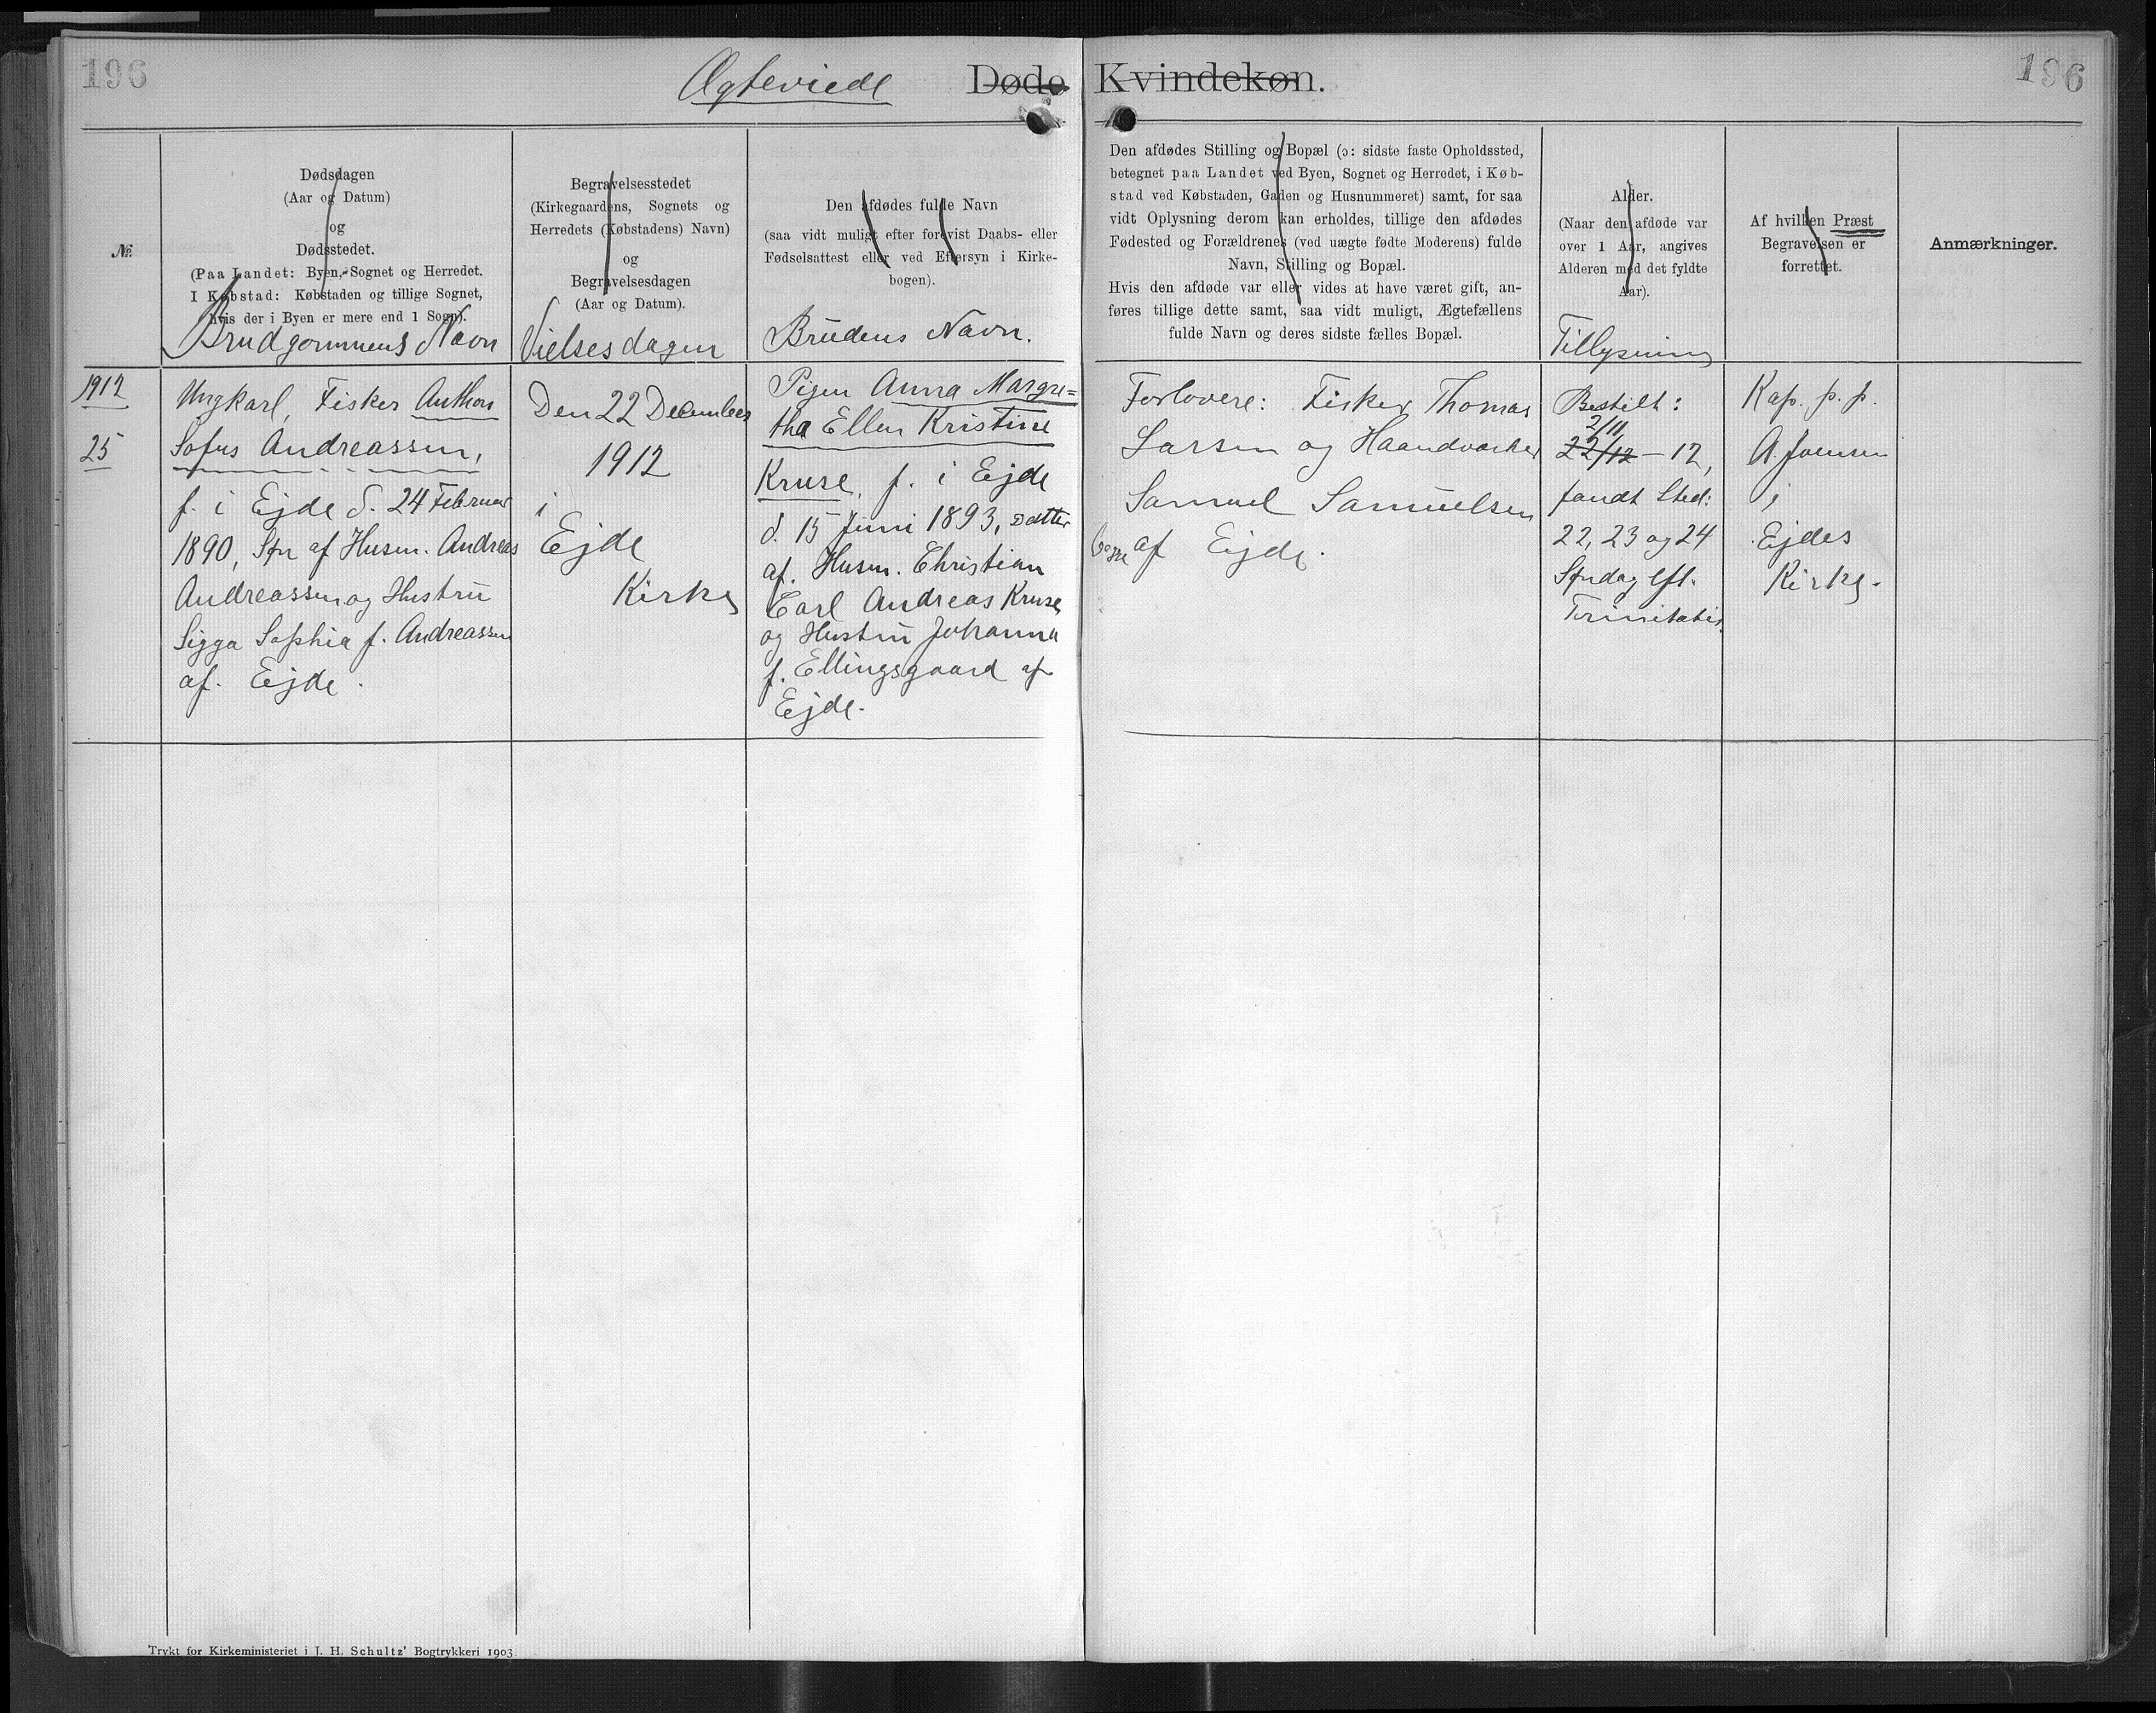 196
Ægteviede Døde Kvindekøn.
196
№.
Dødsdagen
(Aar og Datum)
og
Dødsstedet.
(Paa Landet: Byen, Sognet og Herredet.
I Købstad: Købstaden og tillige Sognet,
hvis der i Byen er mere end 1 Sogn).
Brudgommens Navn
Begravelsesstedet
(Kirkegaardens, Sognets og
Herredets (Købstadens) Navn)
og
Begravelsesdagen
(Aar og Datum).
Vielsesdagen
Den afdødes fulde Navn
(saa vidt muligt efter forevist Daabs- eller
Fødselsattest eller ved Eftersyn i Kirke-
bogen).
Brudens Navn.
Den afdødes Stilling og Bopæl (ɔ: sidste faste Opholdssted,
betegnet paa Landet ved Byen, Sognet og Herredet, i Køb-
stad ved Købstaden, Gaden og Husnummeret) samt, for saa
vidt Oplysning derom kan erholdes, tillige den afdødes
Fødested og Forældrenes (ved uægte fødte Moderens) fulde
Navn, Stilling og Bopæl.
Hvis den afdøde var eller vides at have været gift, an-
føres tillige dette samt, saa vidt muligt, Ægtefællens
fulde Navn og deres sidste fælles Bopæl.
Alder.
(Naar den afdøde var
over 1 Aar, angives
Alderen med det fyldte
Aar).
Tillysning
Af hvilken Præst
Begravelsen er
forrettet.
Anmærkninger.
1912
25
Ungkarl, Fisker Anthon
Sofus Andreassen,
f. i Ejde d. 24 Februar
1890, Søn af Husm. Andreas
Andreassen og Hustru
Sigga Sophia f. Andreassen
af. Ejde.
Den 22 December
1912
i
Ejde
Kirke
Pigen Anna Margre=
tha Ellen Kristine
Kruse, f. i Ejde
d. 15 Juni 1893, Datter
af. Husm. Christian
Carl Andreas Kruse
og Hustru Johanna
f. Ellingsgaard af
Ejde.
Forlovere: Fisker Thomas
Larsen og Haandværker
Samuel Samuelsen
begge af Ejde.
Bestilt:
2/11
22/12 - 12,
fandt Sted:
22, 23 og 24
Søndag eft.
Trinitatis.
Kap. p. p.
A. Joensen
i
Ejdes
Kirke.
Trykt for Kirkeministeriet i J. H. Schultz' Bogtrykkeri 1903.